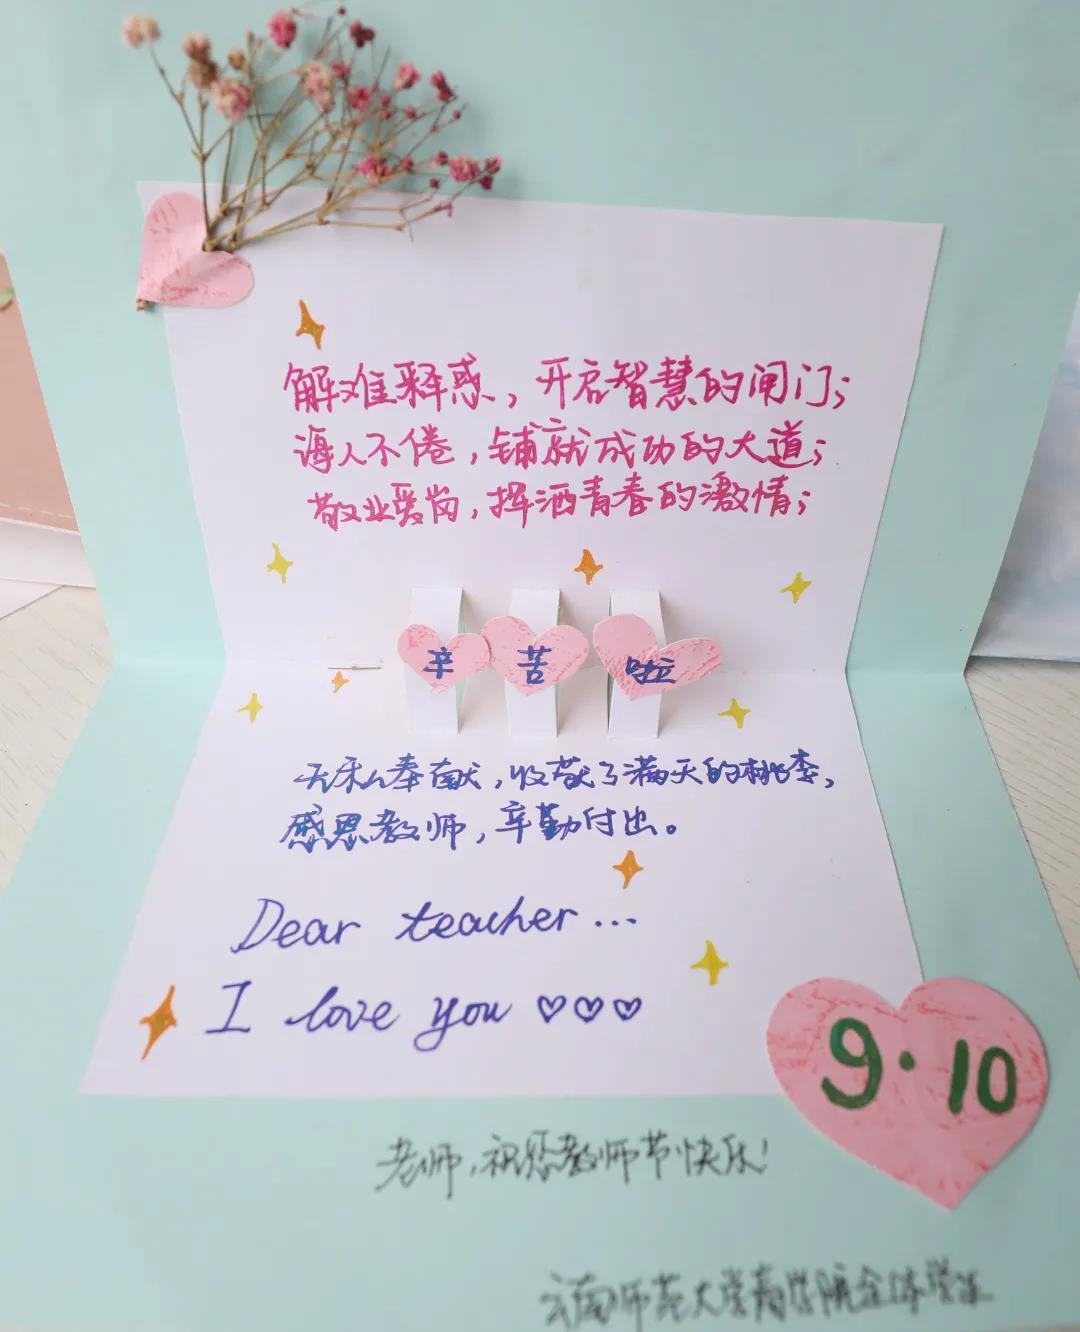 解难释惑，开启智慧的闸门；
诲人不倦，铺就成功的大道；
敬业爱岗，挥洒青春的激情；
辛苦啦
无私奉献，收获了满天的桃李，
感恩教师，辛勤付出。
Dear teacher...
I love you ♡♡♡
9·10
老师，祝您教师节快乐！
云南师范大学商学院全体学生